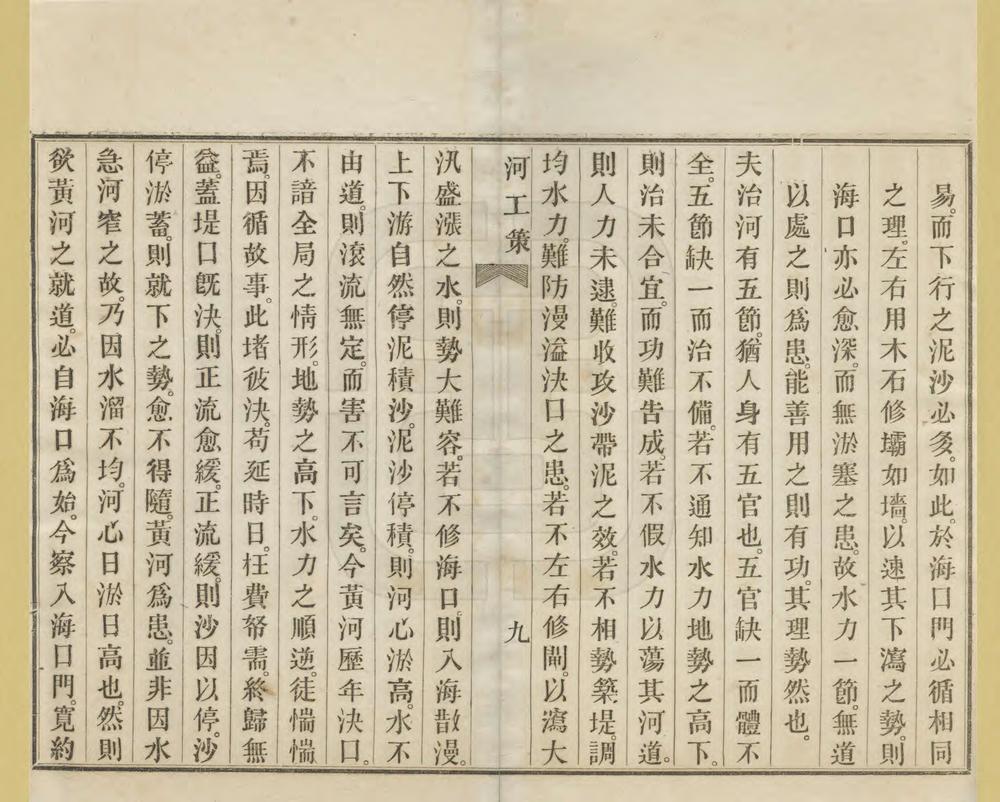 易。而下行之泥沙必多。如此。於海口門必循相同
之理。左右用木石修壩如墻。以速其下瀉之勢。則
海口亦必愈深。而無淤塞之患。故水力一節。無道
以處之則爲患。能善用之則有功。其理勢然也。
夫治河有五節。猶人身有五官也。五官缺一而體不
全。五節缺一而治不備。若不通知水力地勢之高下。
則治未合宜。而功難告成。若不假水力以蕩其河道。
則人力未逮。難收攻沙帶泥之效。若不相勢築堤。調
均水力。難防漫溢決口之患。若不左右修閘。以瀉大
河工策 九
汛盛漲之水。則勢大難容。若不修海口。則入海散漫。
上下游自然停泥積沙。泥沙停積。則河心淤高。水不
由道。則滾流無定。而害不可言矣。今黃河歷年決口。
不諳全局之情形。地勢之高下。水力之順逆。徒惴惴
焉。因循故事。此堵彼決。苟延時日。枉費帑需。終歸無
益。蓋堤口旣決。則正流愈緩。正流緩。則沙因以停。沙
停淤蓄。則就下之勢。愈不得隨。黃河爲患。並非因水
急河窄之故。乃因水溜不均。河心日淤日高也。然則
欲黃河之就道。必自海口爲始。今察入海口門。寬約